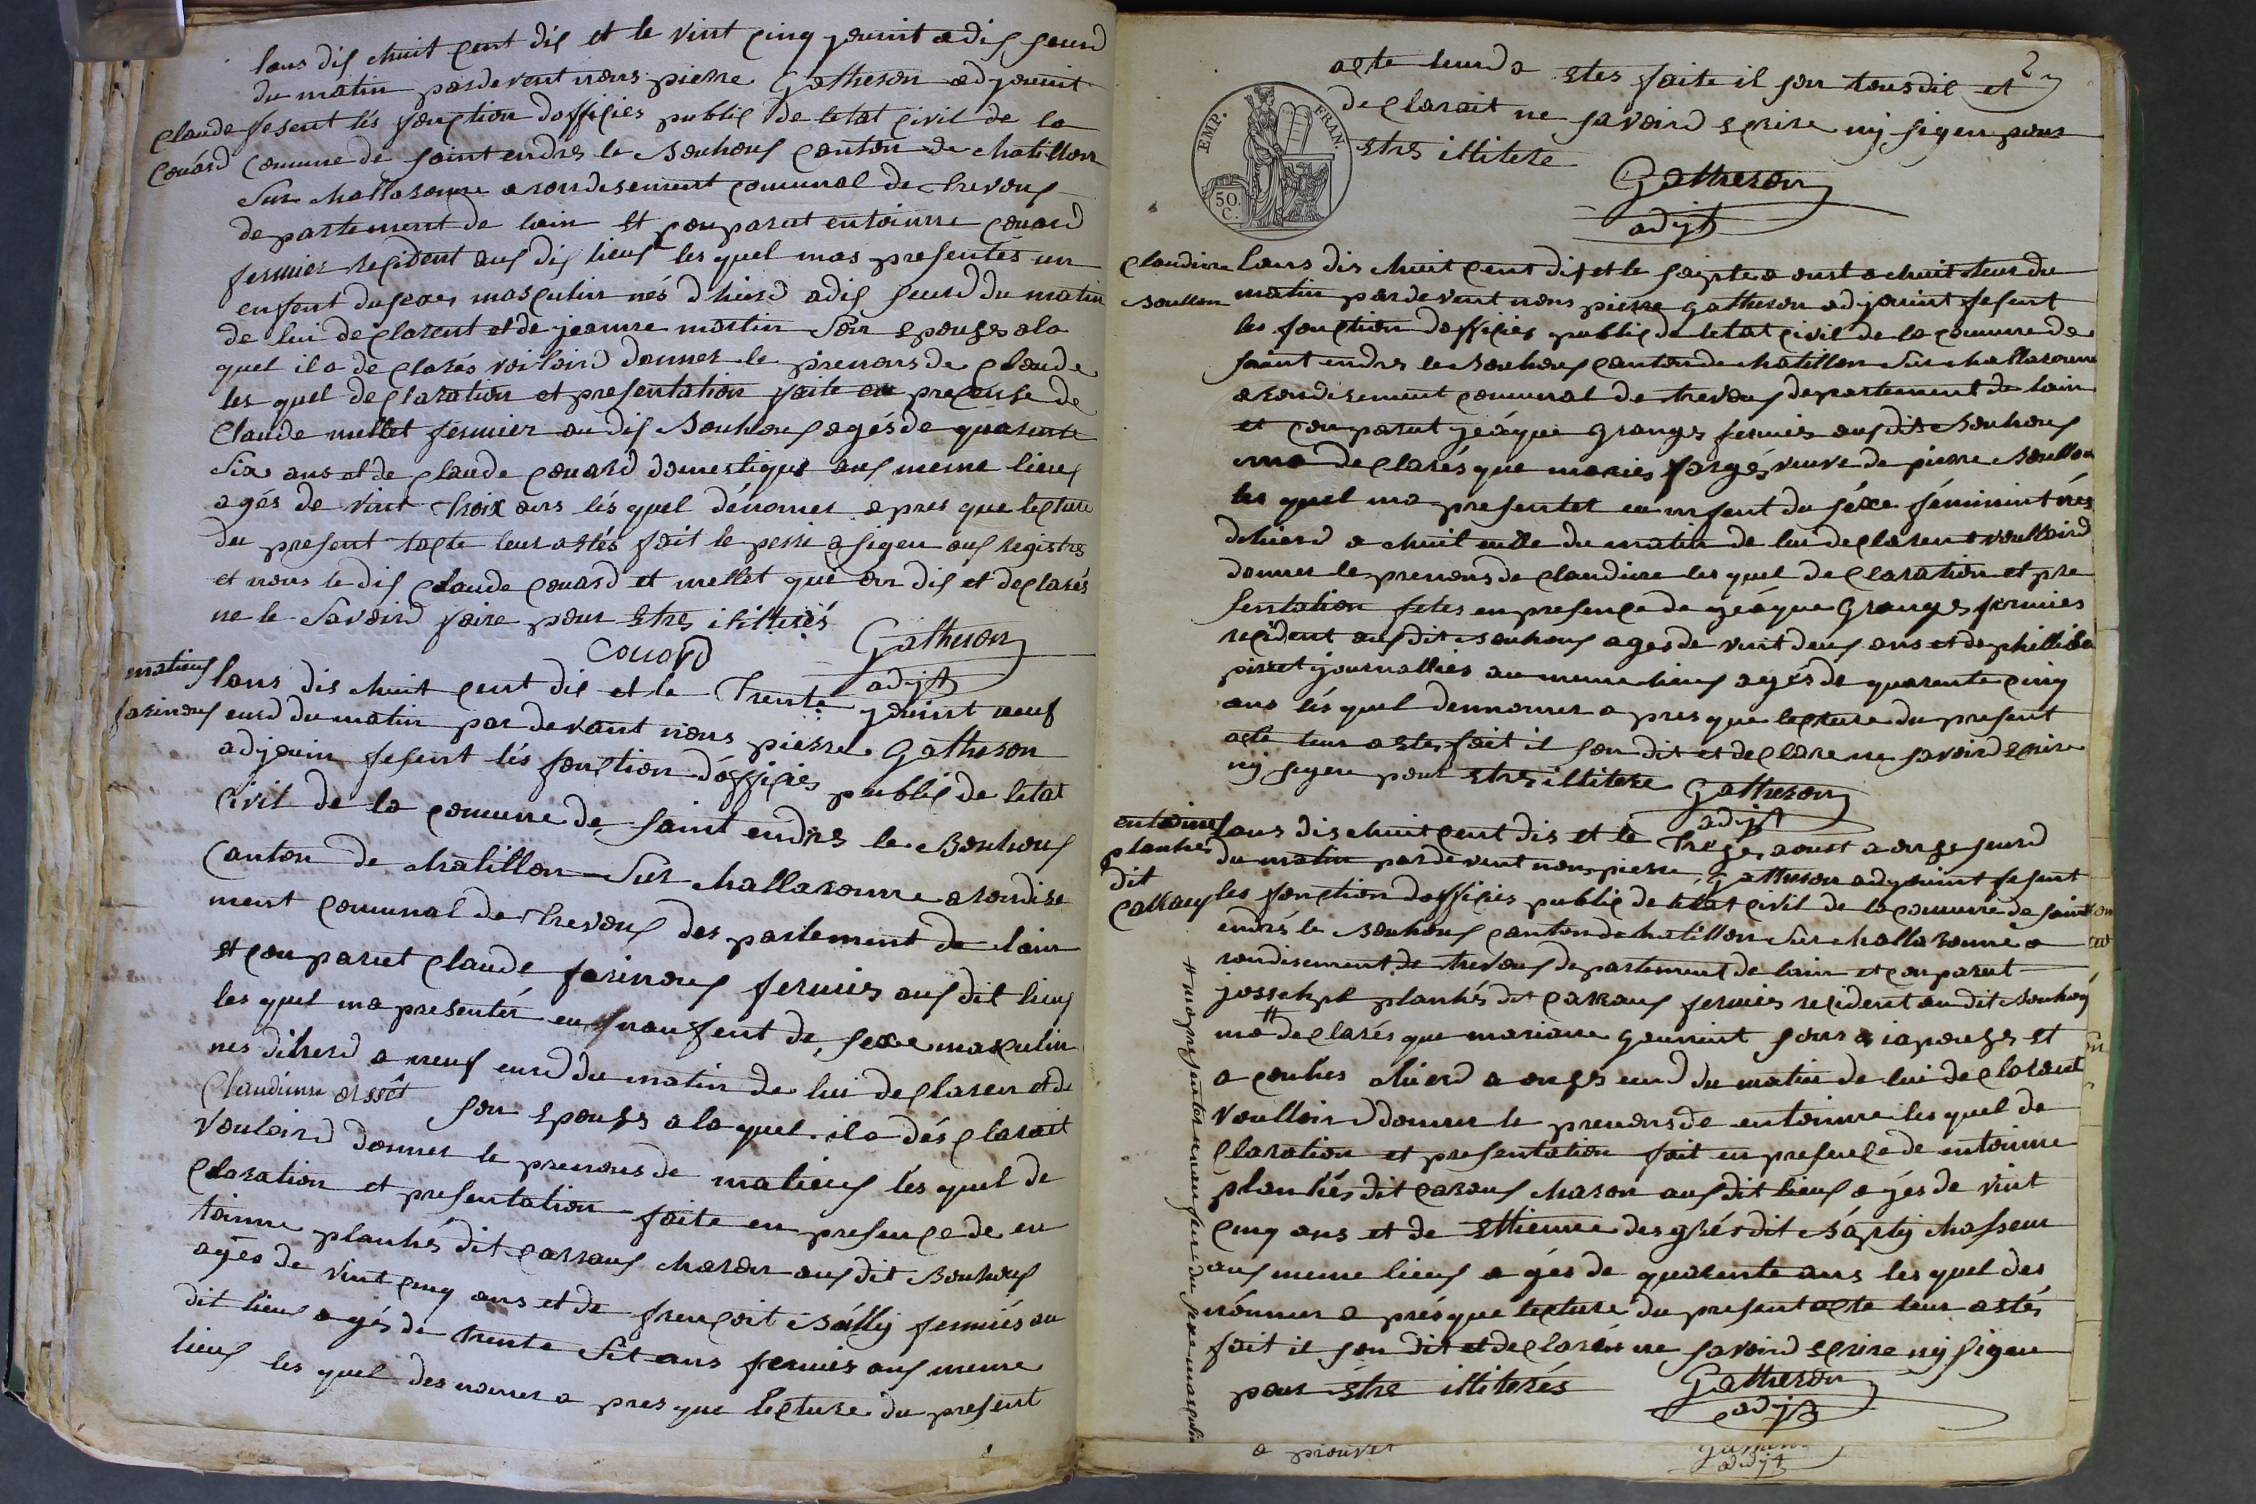 lans dis chuit cent dis et le vint cinq jouint a dis heurd
du matin pardevent nous pierre Gatheron adjouint
Claude
Couard
fesent lés fonction dofficiés public de letat civil de la
comune de saint endres le Bouhous canton de chatillon
sur challaronne arondisement comunal de trevous
departement de lain et comparut entoinne couard
fermier resident aus dis lieus les quel mas presentés un
enfent du sexes masculin nés d hierd a dis heurd du matin
de lui declarent et de jeanne martin son epouzes a la
quel il a declarés voiloird donner le prenons de Claude
les quel declaration et presentation faite en presense de
Claude mellet fermier au dis Bouhous agés de quarente
six ans et de Claude couard domestique aus meme lieus
agés de vint troix ans lés quel dénomer apres que lecture
du present lacte leur a etés fait le perre a signu aus registre
et nous le dis Claude couard et mellet qui on dis et declarés
ne le savoird faire pour etres ilitterés
Couard Gatheron
adjt
matieus
farinous
lans dis chuit cent dis et le trente jouint neuf
eurd du matin par devant nous pierre Gatheron
adjouin fesent lés fonction dófficiés public de letat
civil de la comune de saint endres le Bouhous
canton de chatillon sur challaronne arondise
ment comunal de trevous des partement de lain
et comparut claude farinous fermies aus dit lieus
les quel ma presentér en nenfent de sexe masculin
nes dihierd a neuf eurd du matin de lui declaren et de
Claudinne ossêt son epouzs a la quel il a dés clarait
vouloird donner le prenons de matieus lés quel de
claration et presentation faite en presence de en
toinne planhés dit carraus charon aus dit Bouhous
agés de vint cinq ans et de frencoit Bállÿ fermiés au
dit lieu agés de trente sit ans fermies aus meme
lieus les quel des nomer a pres que lecture du present
2
acte leurd a etes faite il son tous dit et
declarait ne savoird ecrire nÿ signu pour
etres illitere
EMP. FRAN.
50. C.
Gatheron
adjt
Claudinne
Boullon
lans dis chuit cent dis et le sainte a oust a chuit heur du
matin pardevent nous pierre gatheron adjouint fesent
les fonction dofficiés public de letat civil de la comune de
saint endres le Bouhous canton de chatillon sur challaronne
arondisement comunal de trevous departement de lain
et comparut jeáque Granges fermies aus dit Bouhous
ma declarés que maries fargés veuve de pierre Boullon
les quel ma presentet en nfent du séxe féminint nés
dhierd a chuit eurd du matin de lui declarent voulloird
donner le prenons de claudine les quel declaration et pre
sentation fetes en presence de jeáque Granges fermies
resident aus dit Bouhous ages de vint deus ans et de phillibe
piret journallies au meme lieus agés de quarente cinq
ans lés quel denommer a pres que lecture du present
acte leur a etes fait il son dit et declare ne savoird ecrire
nÿ signu pour etres illitere Gatheron
adjt
entoine
planhes
dit
carraus
lans dis chuit cent dis et le treze aoust a onze heurd
du matin pardevent nous pierre Gatheron adjouint fesent
les fonction dofficies public de letat civil de la comune de saint
endrés le Bouhous canton de chatillon sur challaronne a
rondisement de trevous departement de lain et comparut
jossehpt planhés dit carraus fermies resident au dit Bouhous
ma # declarés que mariane geunint sons epouzes et
a couhes ahierd a onzes eurd du matin de lui declarent
voulloird donner le prenons de entoinne les quel de
claration et presentation fait en presence de entoinne
planhés dit caraus charon aus dit lieus agés de vint
cinq ans et de ettienne desgrés dit Báptÿ chasseur
aus meme lieus agés de quarente ans les quel des
nómmer a présque lecture du present acte leur a etés
fait il son dit et declarés ne savoird ecrire nÿ signu
pour étre illiterés Gatheron
adjt
# ma presentér un enfen du sexe masculin
a prouver
adjt